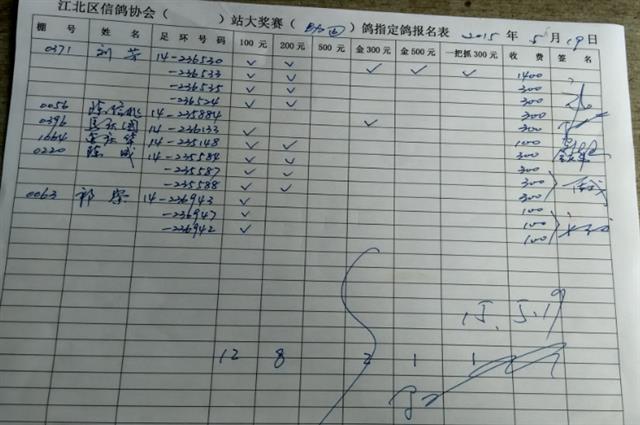 江北区信鸽协会（ ）站大奖赛（ ）鸽指定鸽报名表 2015年5月19日
棚号 姓名 足环号码 100元 200元 500元 金300元 金500元 一把抓300元 收费 签名
0371 刘芳 14-236530 ✓ ✓ ✓ ✓ ✓ 1400
-236533 ✓ ✓ 300
-236535 ✓ ✓ 300
-236524 ✓ ✓ 300
0056 14-235884 ✓ 300
0396 14-236133 ✓ 
1664 14-235148 ✓ ✓ 
0220 陈成 14-235584 ✓ ✓ 300
-235587 ✓ ✓ 300
-235588 ✓ ✓ 300
0063 祁荣 14-236943 ✓ 100
-236947 ✓ 100
-236942 ✓ 100
15.5.19
12 8 2 1 1